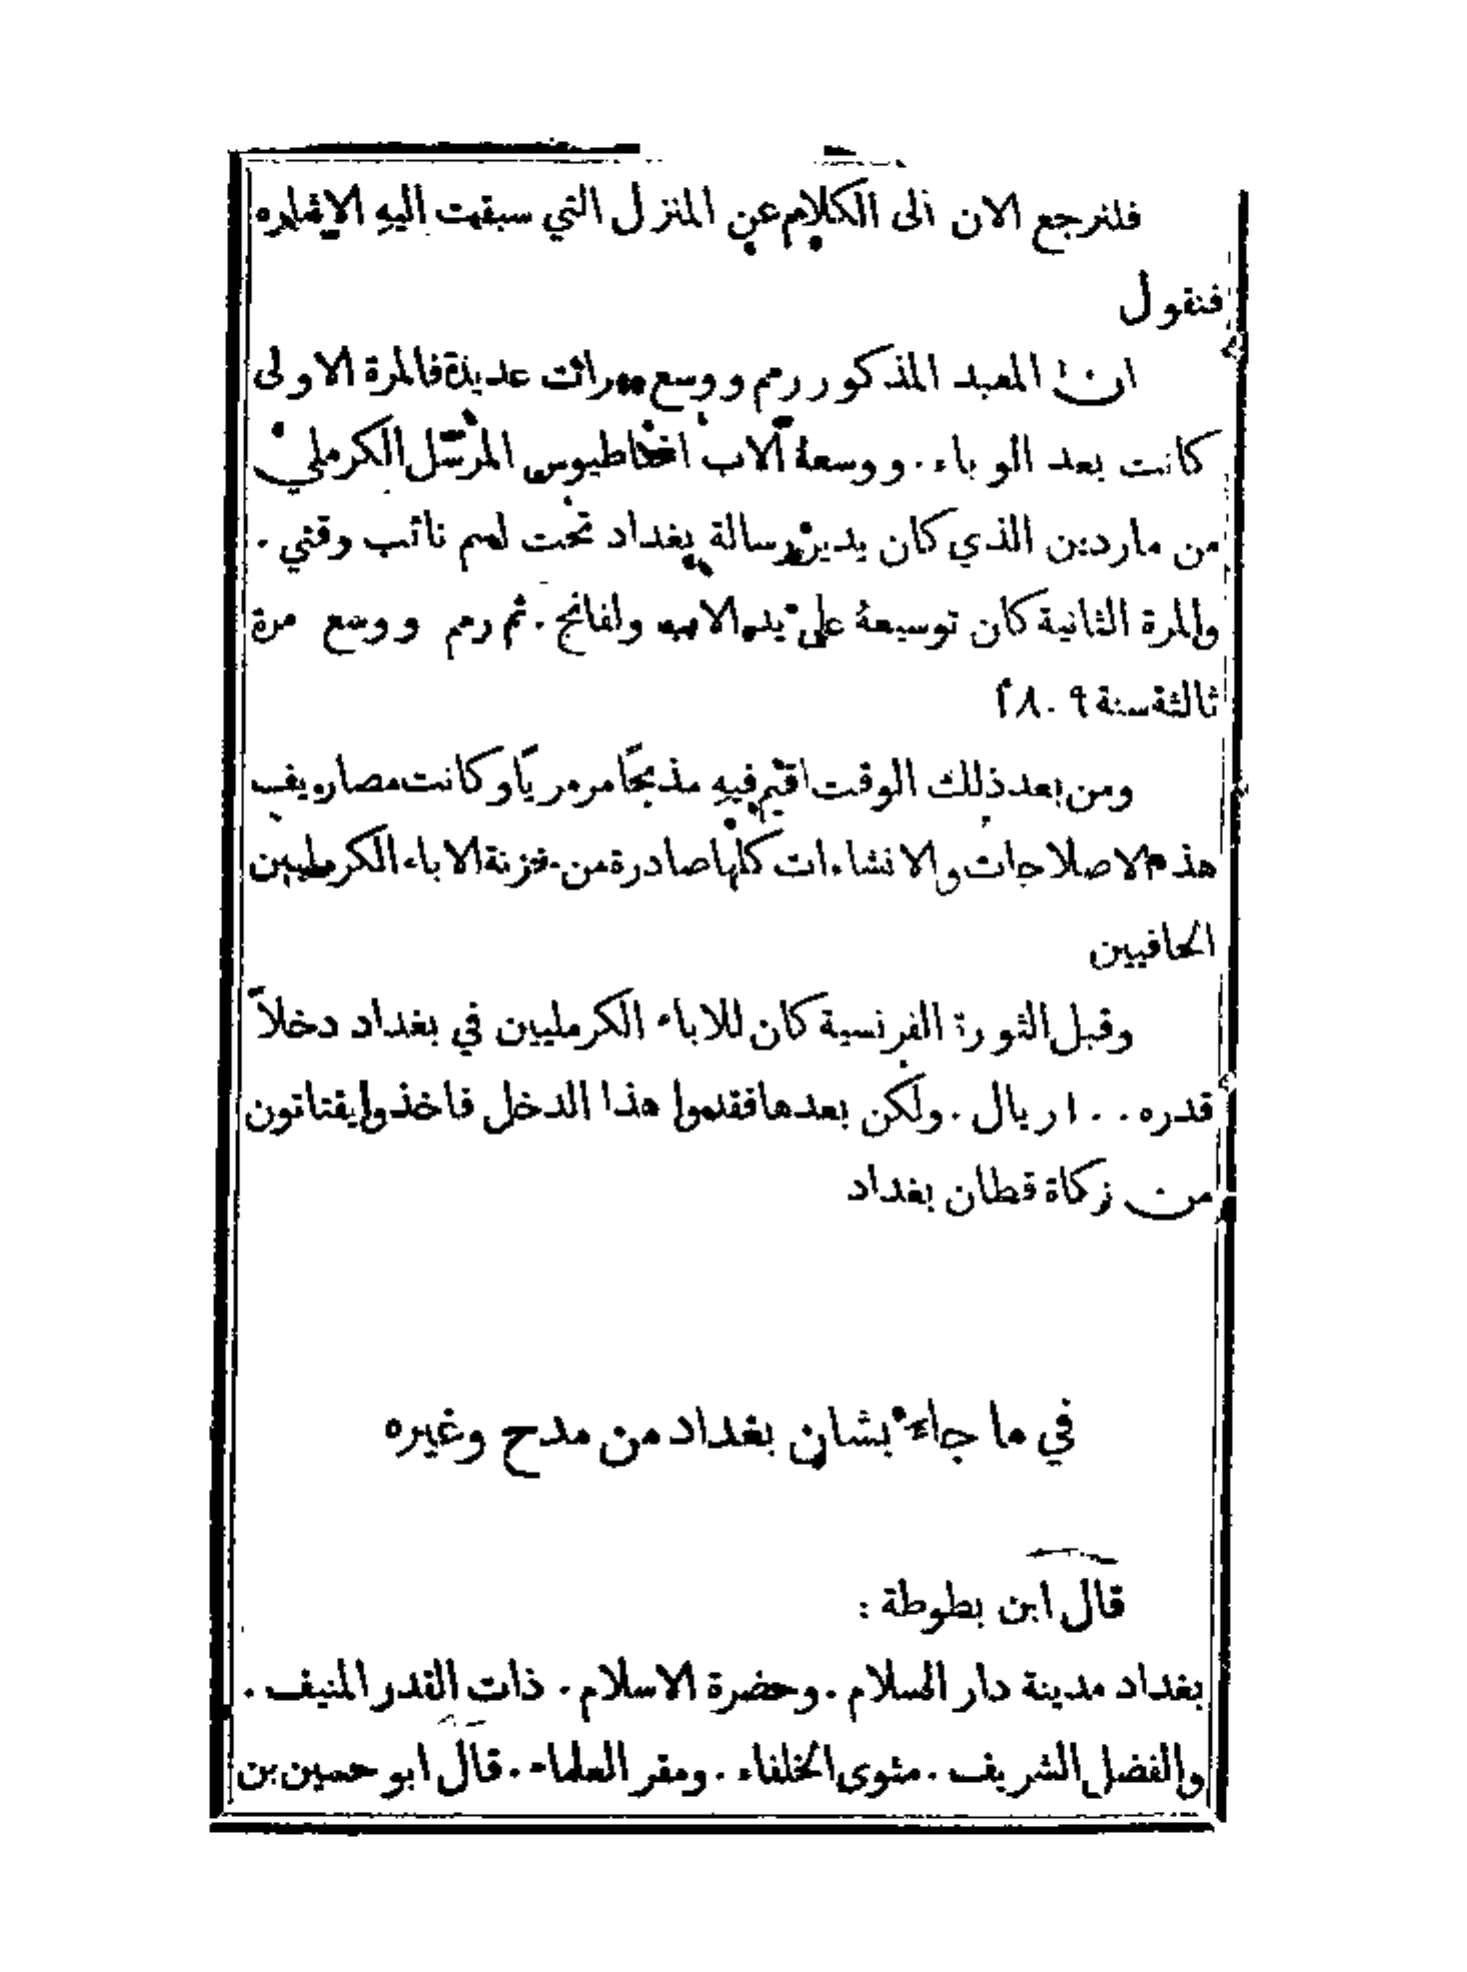 فلنرجع الان الى الكلام عن المنزل التي سبقت اليه الاشاره
فنقول
ان المعبد المذكور رمم ووسع مرات عديدة فالمرة الاولى
كانت بعد الوباء . ووسعهُ الاب اغناطيوس المرسل الكرملي
من ماردين الذي كان يدير رسالة بغداد تحت اسم نائب وقتي .
والمرة الثانية كان توسيعهُ على يد الاب . ثم رمم ووسع مرة
ثالثة سنة ١٨٠٩
ومن بعد ذلك الوقت اقيم فيهِ مذبحًا مرمريًا وكانت مصاريف
هذه الاصلاحات والانشاءات كلها صادرة من خزنة الاباء الكرمليين
الحافيين
وقبل الثورة الفرنسية كان للاباء الكرمليين في بغداد دخلاً
قدره ١٠٠ ريال . ولكن بعدها فقدوا هذا الدخل فاخذوا يقتاتون
من زكاة قطان بغداد
في ما جاء بشان بغداد من مدح وغيره
قال ابن بطوطة :
بغداد مدينة دار السلام . وحضرة الاسلام . ذات القدر المنيف .
والفضل الشريف . مثوى الخلفاء . ومقر العلماء . قال ابو حسين بن